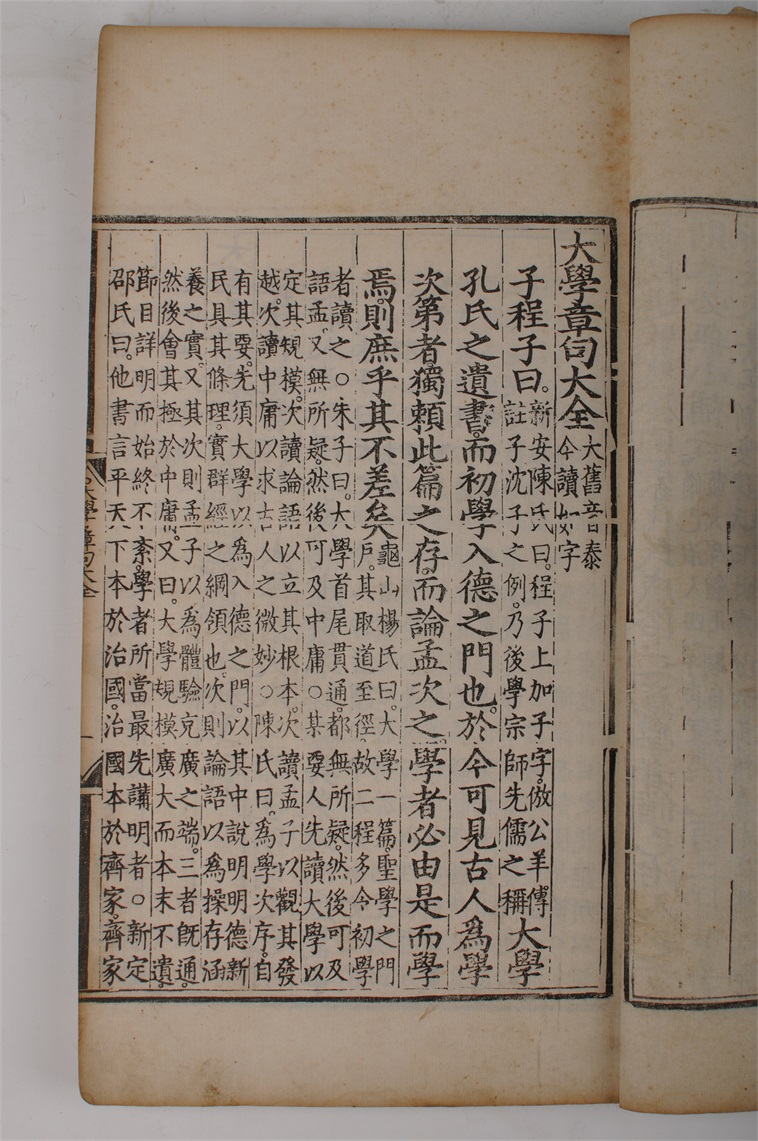 大學章句大全
大舊音泰
今讀如字
子程子曰。
新安陳氏曰。程子上加子字。倣公羊傳
註子沈子之例。乃後學宗師先儒之稱
大學
孔氏之遺書。而初學入德之門也。於今可見古人爲學
次第者獨賴此篇之存。而論孟次之。學者必由是而學
焉。則庶乎其不差矣
龜山楊氏曰。大學一篇。聖學之門
戶。其取道至徑。故二程多令初學
者讀之。○朱子曰。大學首尾貫通。都無所疑。然後可及
語孟。又無所疑。然後可及中庸○某要人先讀大學以
定其規模。次讀論語以立其根本。次讀孟子以觀其發
越。次讀中庸以求古人之微妙○陳氏曰。爲學次序。自
有其要。先須大學以爲入德之門。以其中說明明德新
民具其條理。實群經之綱領也。次則論語以爲操存涵
養之實。又其次則孟子以爲體驗充廣之端。三者旣通
然後會其極於中庸。又曰。大學規模廣大而本末不遺。
節目詳明而始終不紊。學者所當最先講明者。○新定
邵氏曰。他書言平天下本於治國。治國本於齊家。齊家
大學章句大全